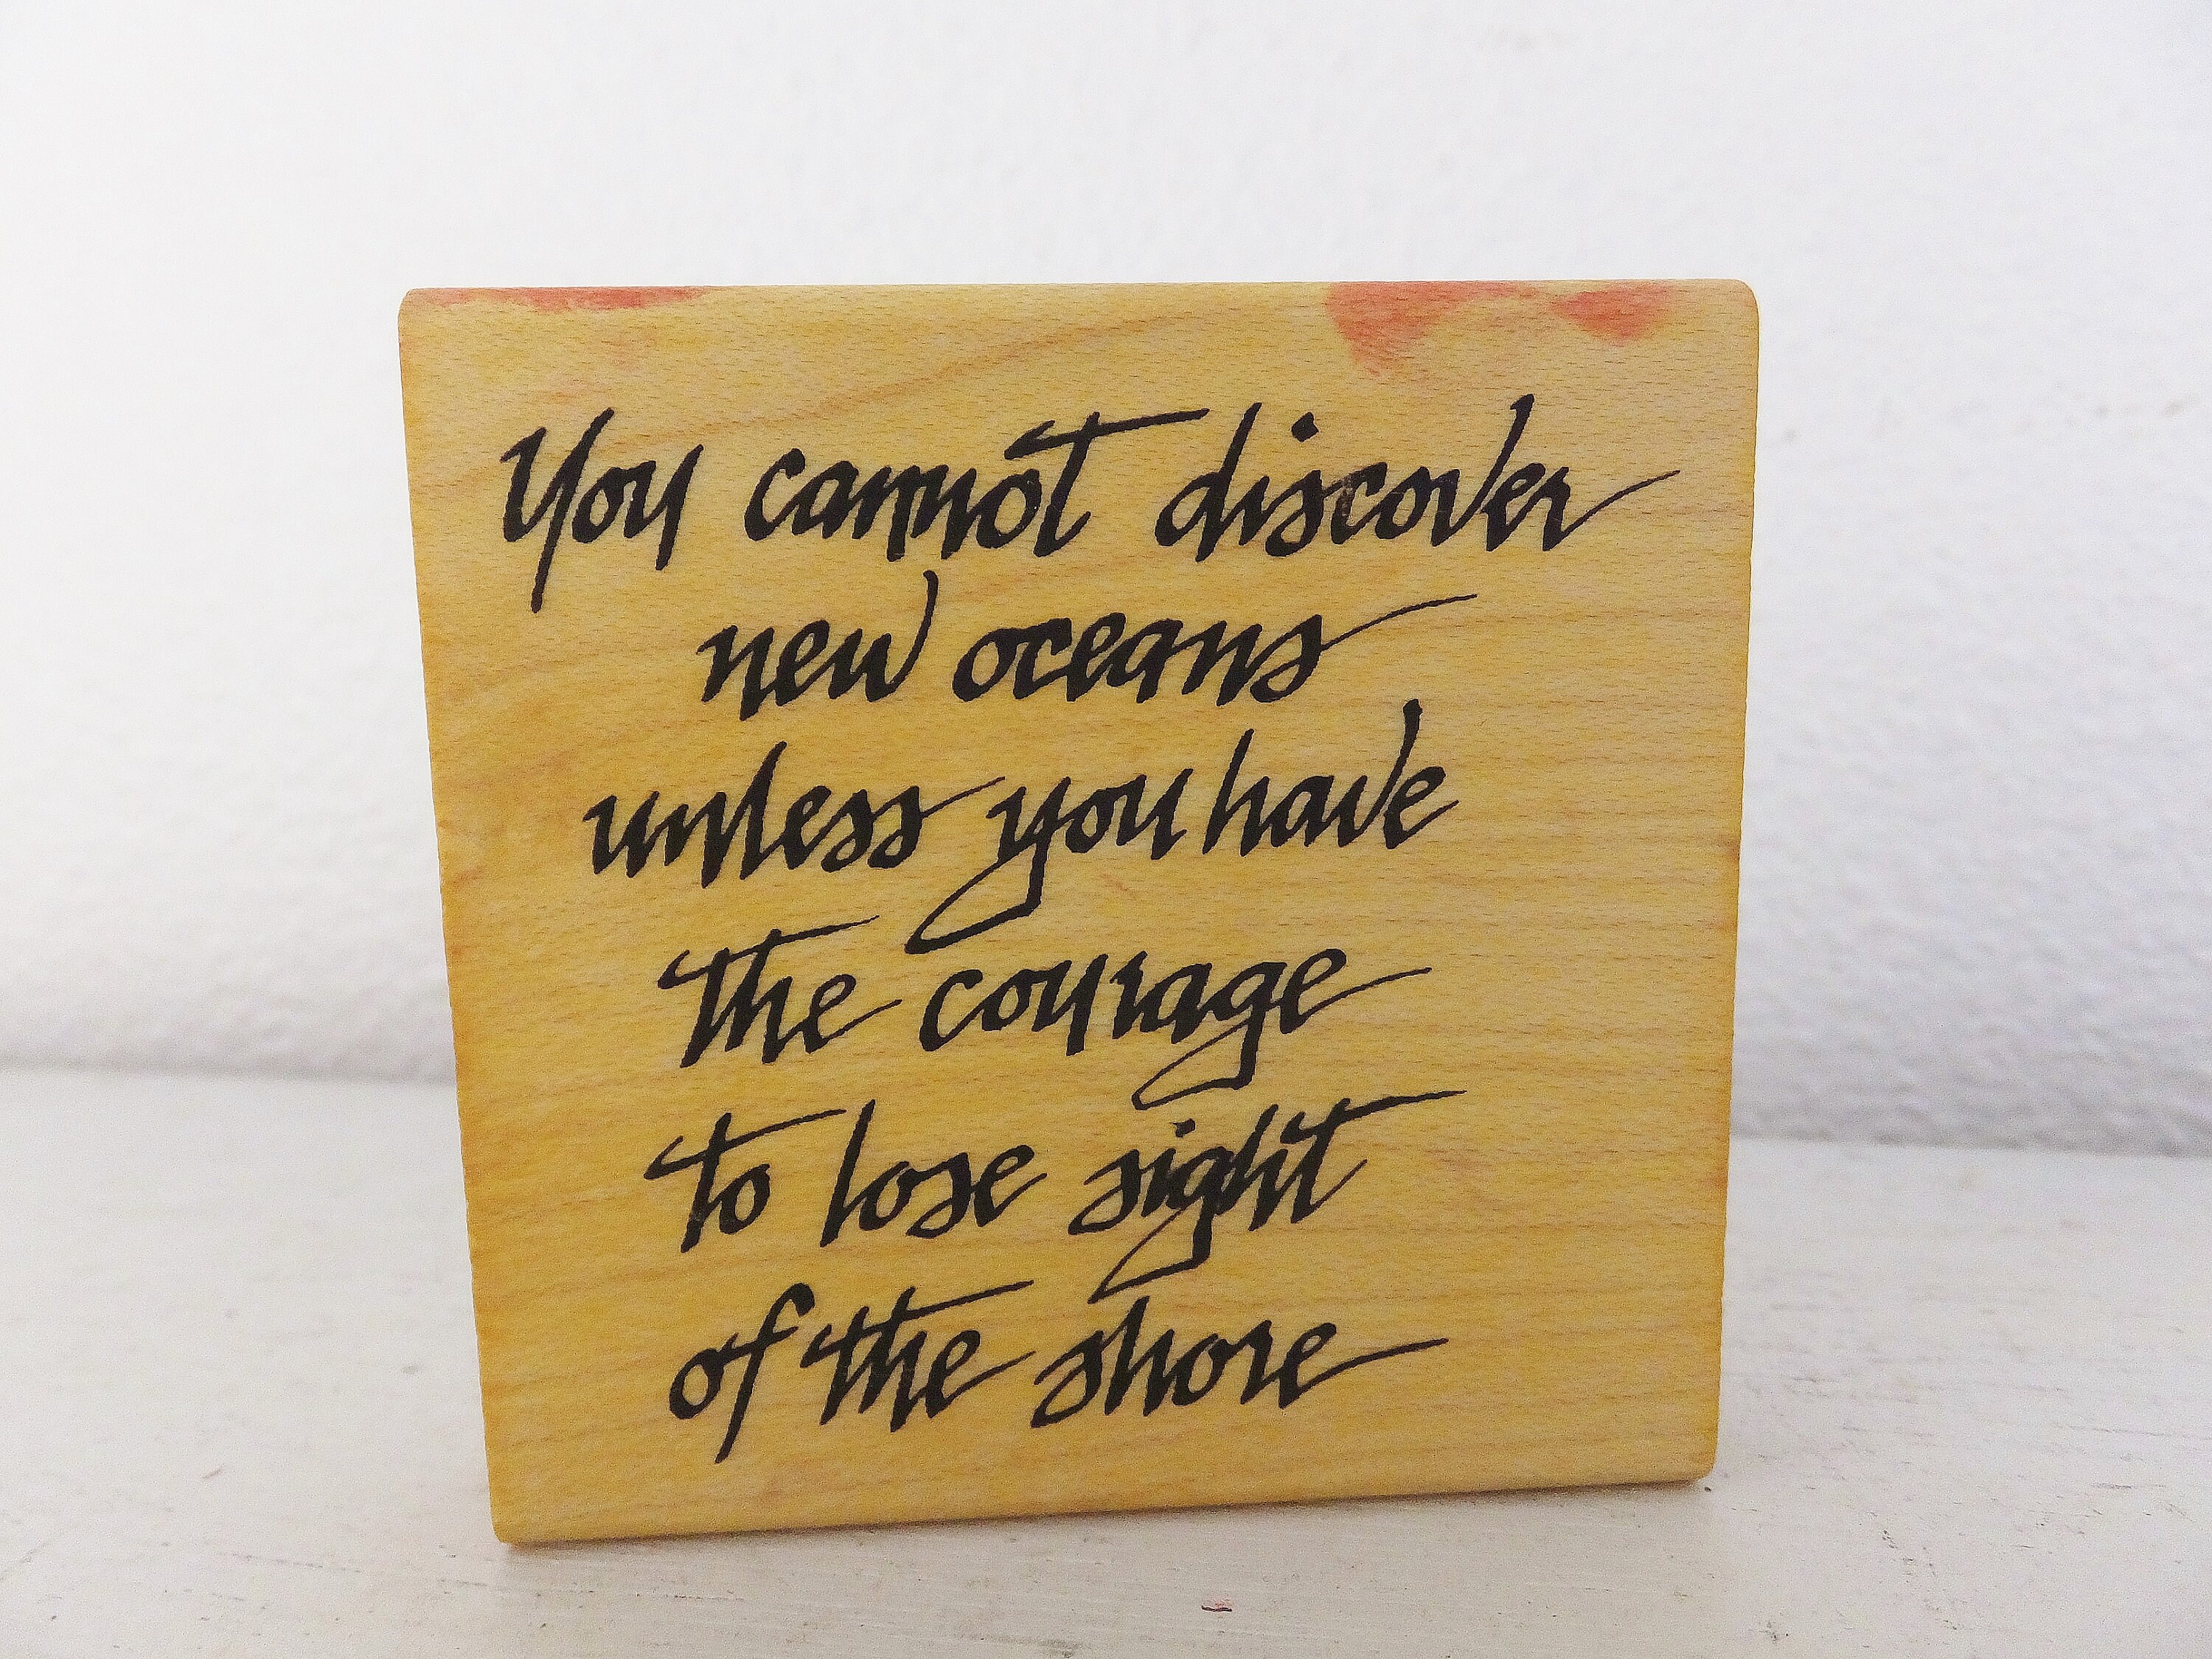 You cannot discover
new oceans
unless you have
the courage
to lose sight
of the shore